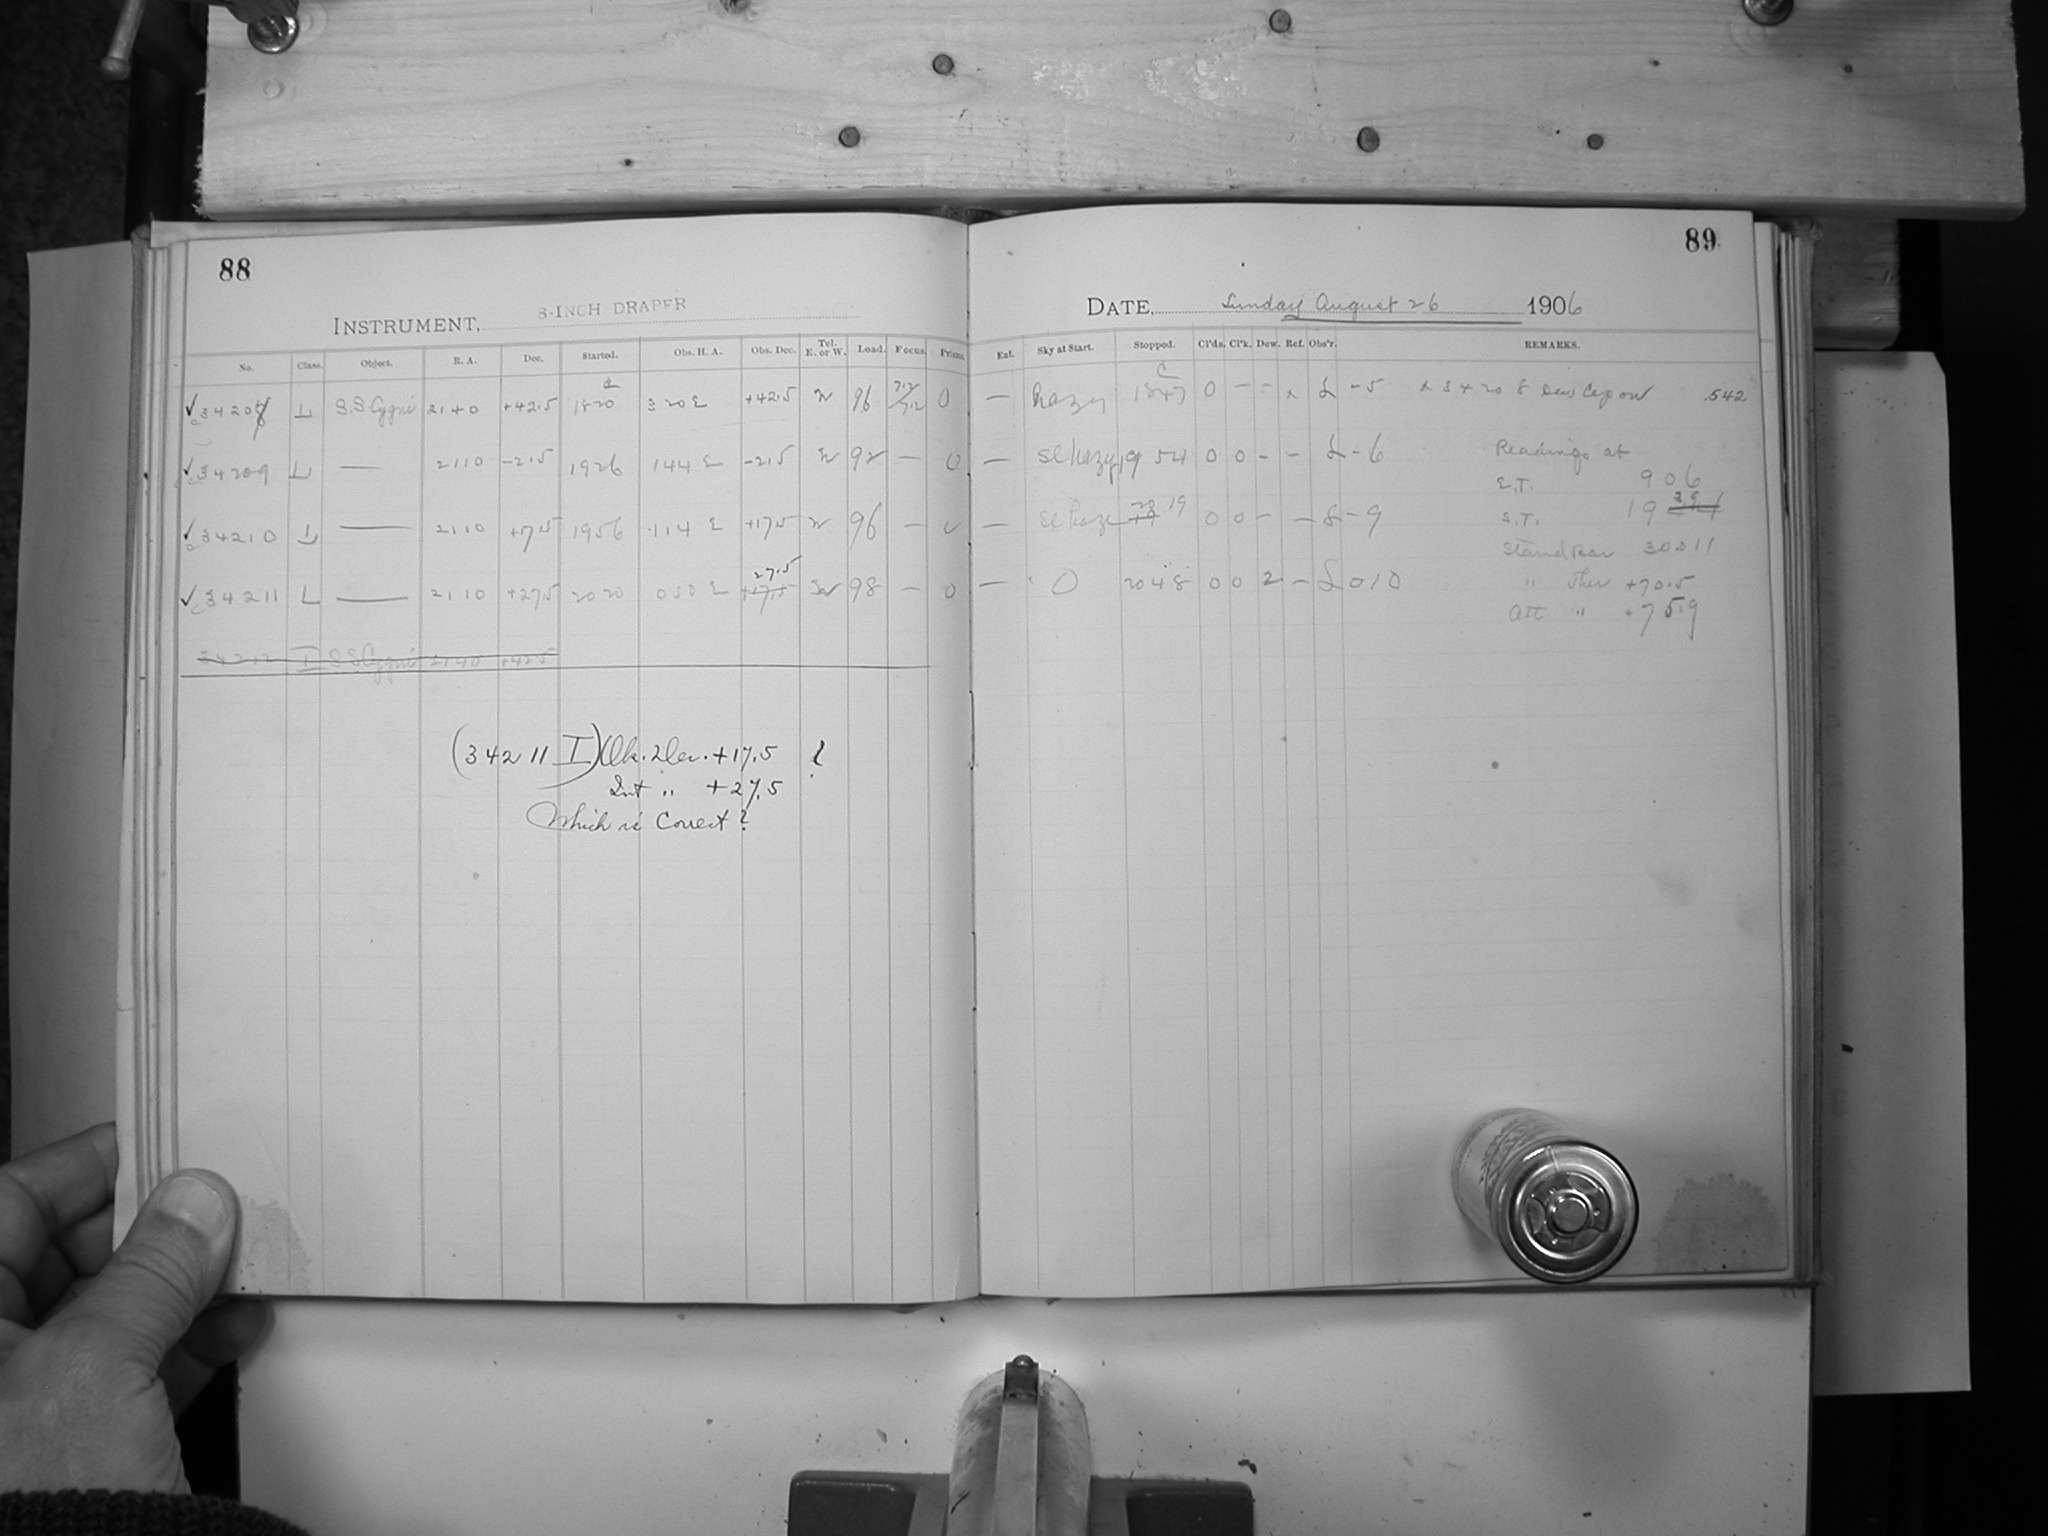 88
INSTRUMENT, 8-INCH DRAPER
No. Class. Object. R. A. Dec. Started. Obs. H. A. Obs. Dec. Tel. E. or W. Load. Focus. Prisms.
34208 L S.S Cygni 2140 +42.5 1820 320 E +42.5 W 96 0
34209 L — 2110 -2.5 1926 144 E -2.5 W 92 — 0
34210 L — 2110 +17.5 1956 114 E +17.5 W 96 —
34211 L — 2110 +27.5 2020 050 E 27.5 +17.5 W 98 — 0
34212 I S S Cygni 2140 +42.5
(34211 I) Bk. Dec. +17.5 ?
Int " +27.5
Which is Correct?
89
DATE, Sunday August 26 1906
Ent. Sky at Start. Stopped. Cl'ds. Cl'k. Dew. Ref. Obs'r. REMARKS.
— hazy 1847 0 - - x L -5 x 34208 dew cap on .542
— sl hazy 19 54 0 0 - - L -6
— sl haze 20 19 0 0 - - L -9
— 0 2048 0 0 2 - L 010
Readings at
E.T. 906
S.T. 19 39
Stand Bar 30011
" Ther +70.5
Att " +75.9